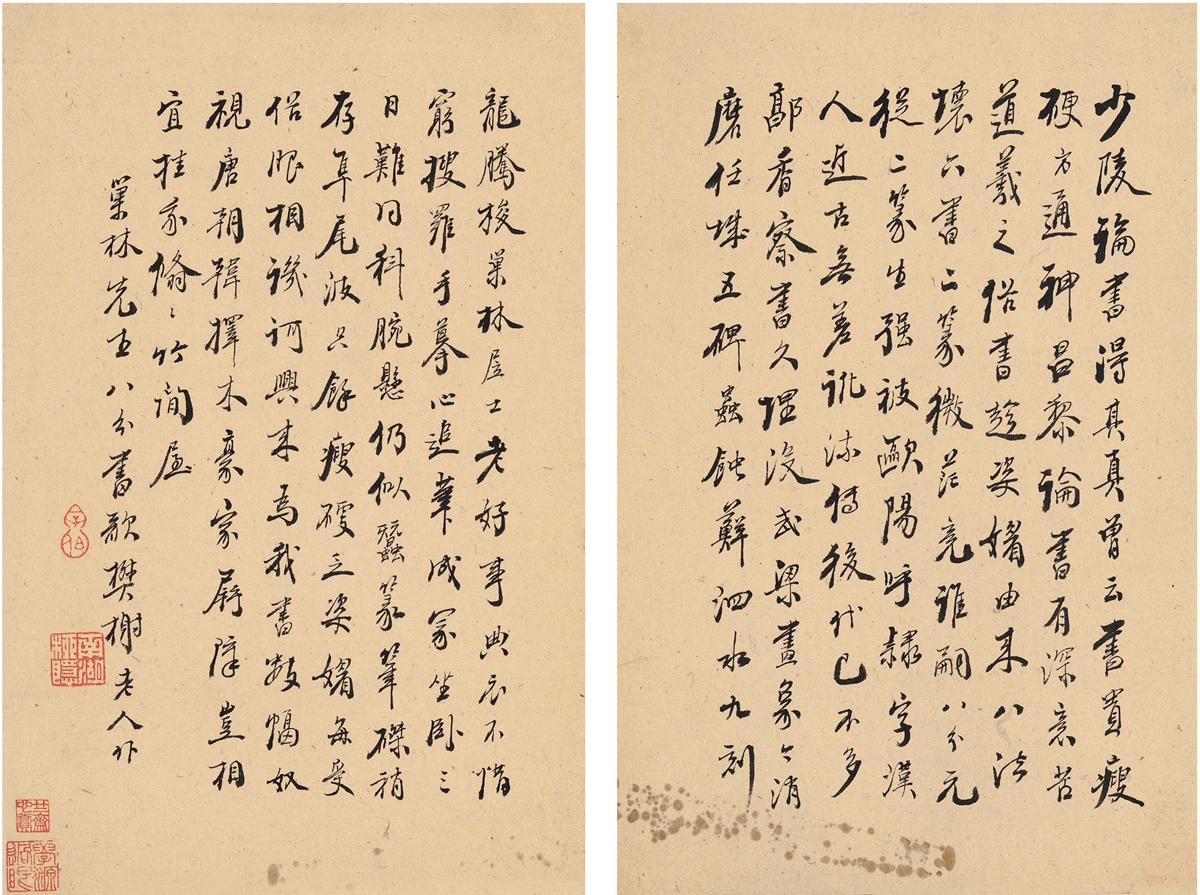 少陵論書得其真曾云書貴瘦
硬方通神昌黎論書有深意苦
道羲之俗書趁姿媚由来八法
壞六書二篆微茫竟誰嗣八分元
從二篆生强被歐陽呼隸字漢
人近古無差訛流傳後代已不多
鄐香察書久埋没武梁畫象今消
磨任城五碑蟲蝕蘚泗水九刻
龍騰梭巢林居士老好事典衣不惜
窮搜羅手摹心追筆成冢坐卧三
日難同科腕懸仍似蠶篆筆磔稍
存隼尾波只餘瘦硬乏姿媚每受
俗眼相譏訶興来為我書數幅奴
視唐朝韓擇木豪家屏障豈相
宜挂我翛〻竹間屋
巢林先生八分書歌樊榭老人作